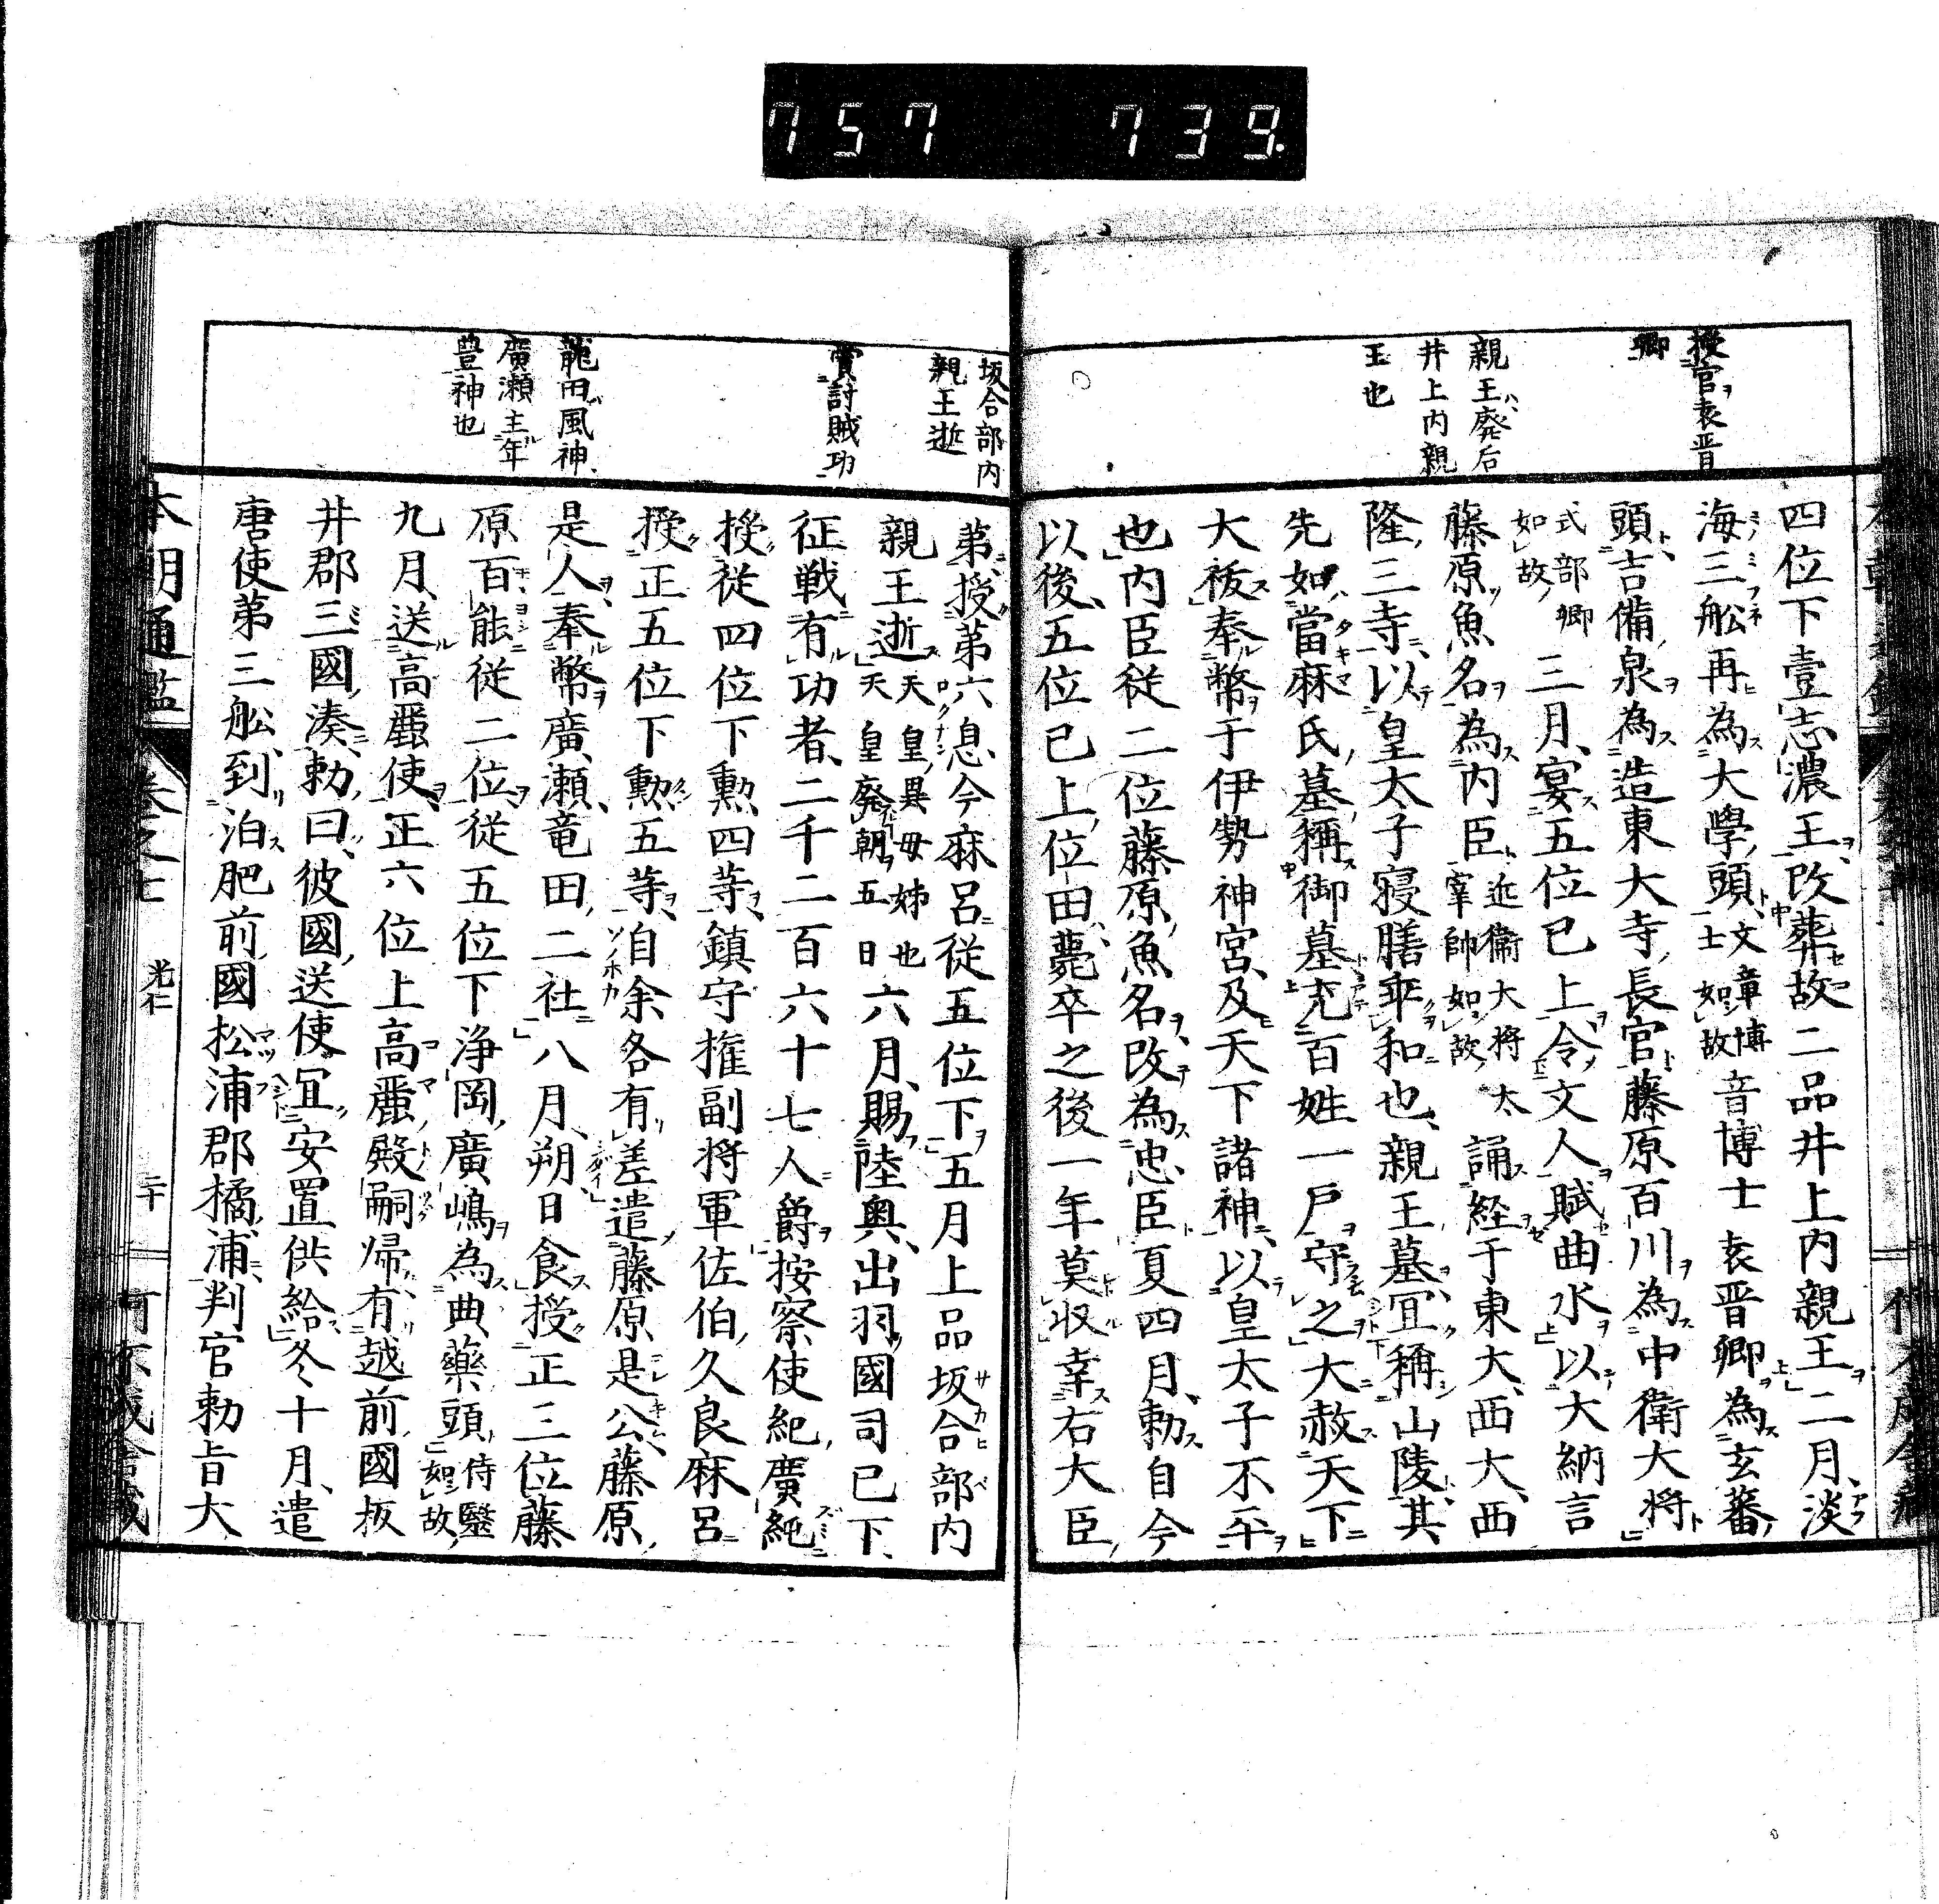 757 739.
授官袁晋
卿
親王廃后
井上内親
王也
四位下壹志濃王改葬故二品井上内親王二月淡
海三舩再為大學頭文章博士如故音博士袁晋卿為玄蕃
頭吉備泉為造東大寺長官藤原百川為中衛大将
式部卿如故三月宴五位已上令文人賦曲水以大納言
藤原魚名為内臣近衛大将太宰帥如故誦経于東大西大西
隆三寺以皇太子寝膳乖和也親王墓宜稱山陵其
先如當麻氏墓稱御墓充百姓一戸守之大赦天下
大祓奉幣于伊勢神宮及天下諸神以皇太子不平
也内臣従二位藤原魚名改為忠臣夏四月勅自今
以後五位已上位田薨卒之後一年莫収幸右大臣
坂合部内
親王逝
賞討賊功
龍田風神
廣瀬主年
豊神也
第授第六息今麻呂従五位下五月上品坂合部内
親王逝天皇異母姊也天皇廃朝五日六月賜陸奥出羽國司已下
征戦有功者二千二百六十七人爵按察使紀廣純
授従四位下勲四等鎮守権副将軍佐伯久良麻呂
授正五位下勲五等自余各有差遣藤原是公藤原
是人奉幣廣瀬竜田二社八月朔日食授正三位藤
原百能従二位従五位下浄岡廣嶋為典藥頭侍醫如故
九月送高麗使正六位上高麗殿嗣帰有越前國坂
井郡三國湊勅曰彼國送使宜安置供給冬十月遣
唐使第三舩到泊肥前國松浦郡橘浦判官勅旨大
本朝通鑑 卷之七 光仁 二十